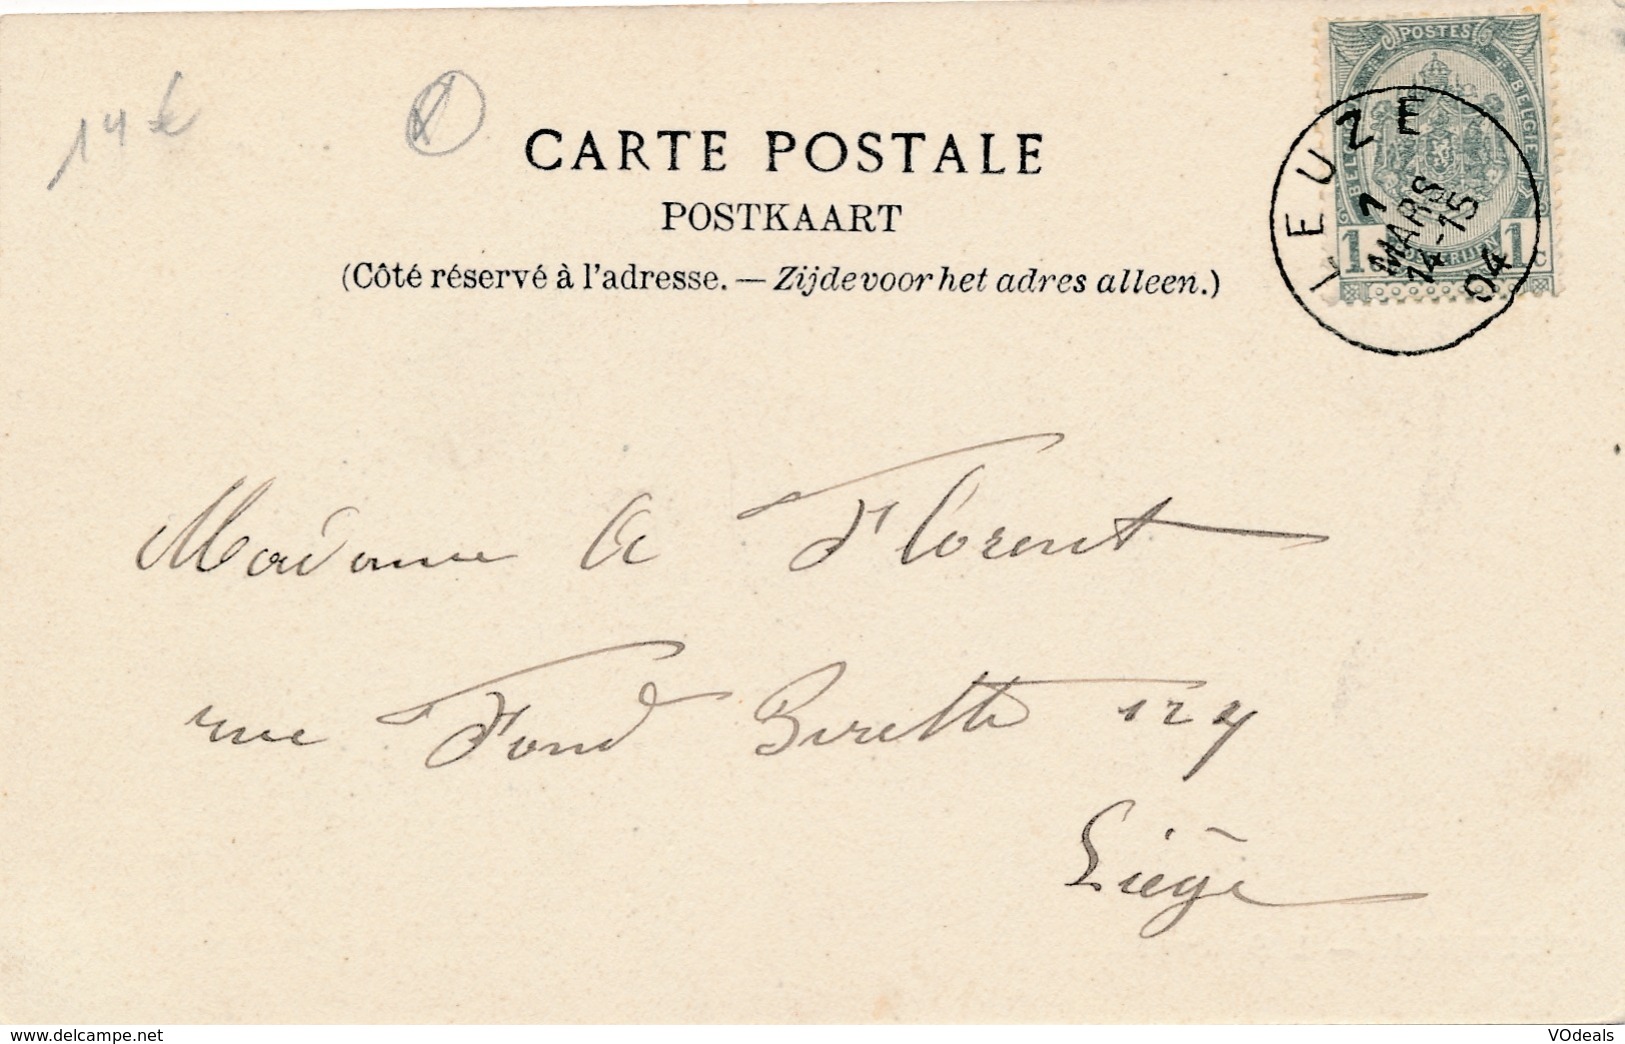 14 €
CARTE POSTALE
POSTKAART
(Côté réservé à l'adresse. — Zijde voor het adres alleen.)
POSTES
BELGIQUE
1 1 C
LEUZE
7
MARS
14-15
04
Madame A Florent
rue Fond Pirette 124
Liège
www.delcampe.net
VOdeals